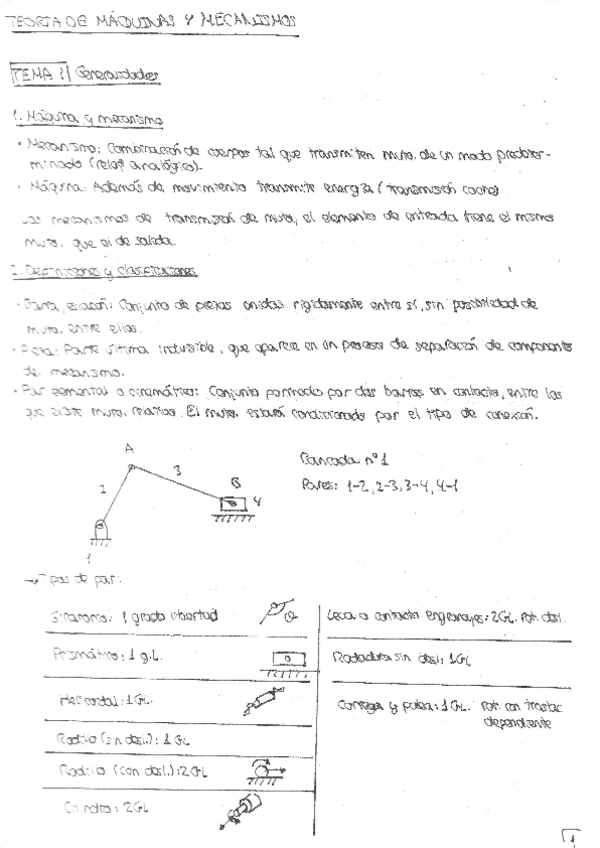 TEORIA DE MÁQUINAS Y MECANISMOS
TEMA 1 | Generalidades
1. Máquina y mecanismo
· Mecanismo: Combinación de cuerpos tal que transmiten mvto. de un modo predeter-
minado (reloj analógico).
· Máquina: Además de movimiento transmite energía (transmisión coche)
mecanismos de transmisión de mvto, el elemento de entrada tiene el mismo
mvto. que el de salida.
2. Definiciones y clasificaciones
· Barra, eslabón: Conjunto de piezas unidas rigidamente entre sí, sin posibilidad de
mvto. entre ellas.
· Pieza: Parte última indivisible, que aparece en un proceso de separación de componentes
de mecanismo.
· Par elemental o cinemático: Conjunto formado por dos barras en contacto, entre las
que existe mvto. relativo. El mvto. estará condicionado por el tipo de conexión.
A
3
B
2
4
1
Bancada nº1
Pares: 1-2, 2-3, 3-4, 4-1
→ Tipos de par:
Giratorio: 1 grado libertad
θ
Prismático: 1 g.L.
Helicoidal: 1GL.
Rodillo (sin desl.): 1 GL
Rodillo (con desl.): 2GL
Cilindro: 2GL
Leva o contacto engranajes: 2GL. rot. desl.
Rodadura sin desl: 1GL
Correa y polea: 1GL. rot. con traslac
dependiente
1